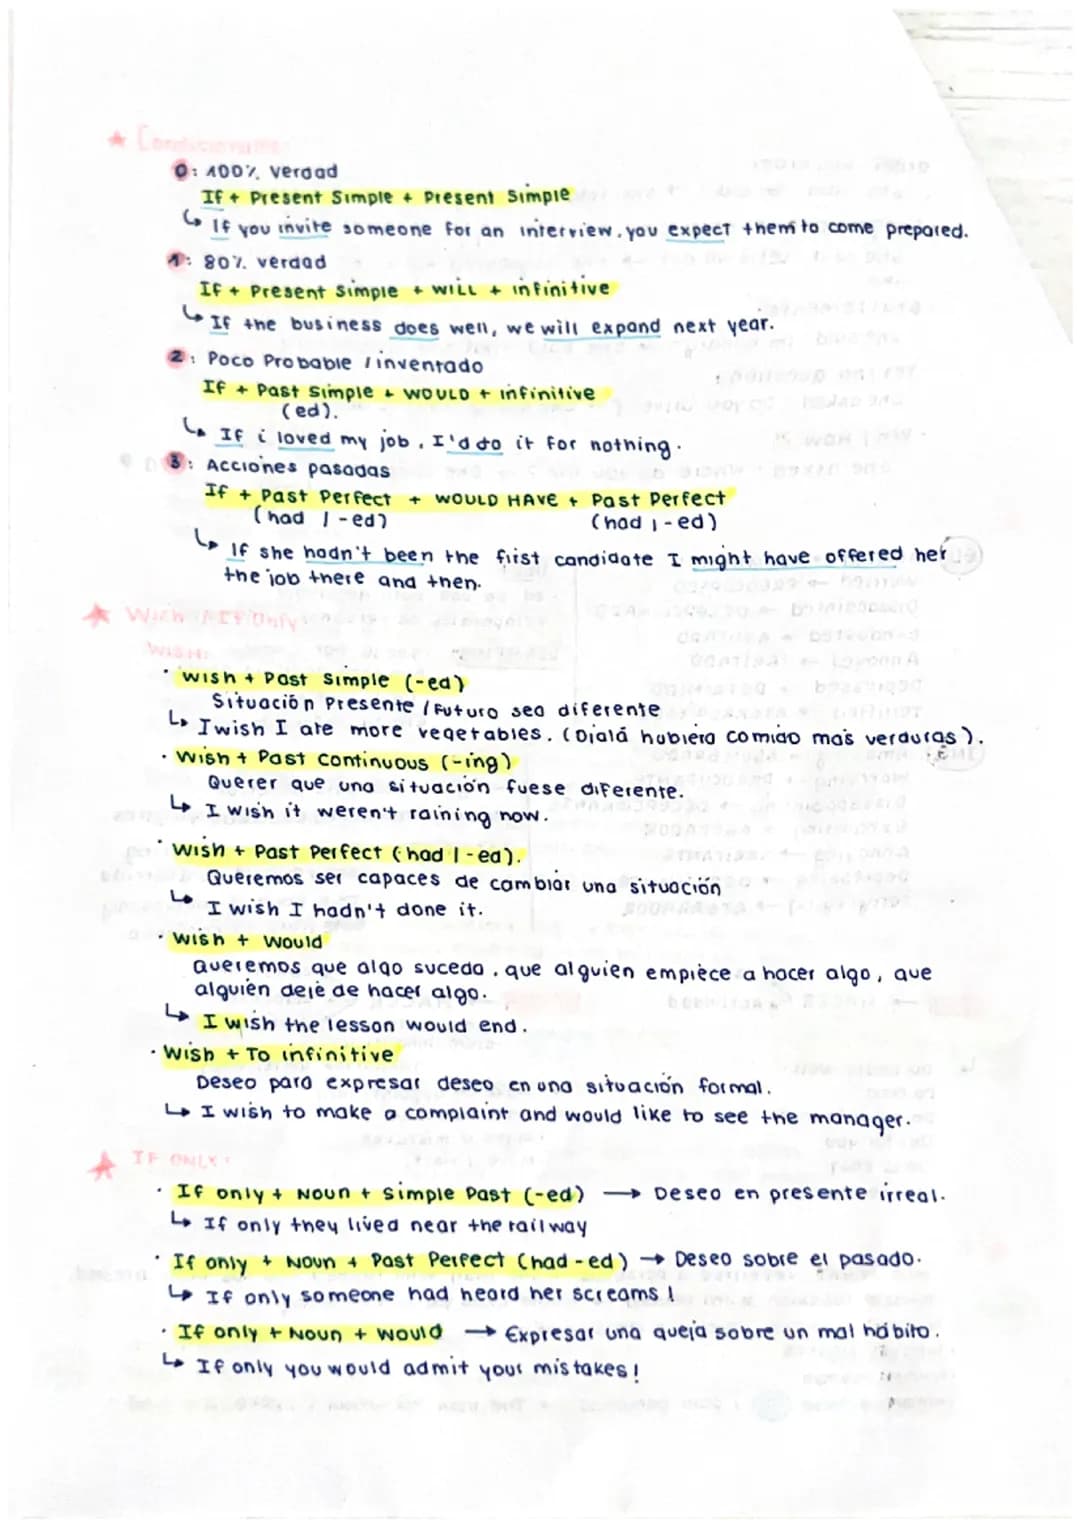 ★ Condicionales
0: 100% verdad
If + Present Simple + Present Simple
↳ If you invite someone for an interview, you expect them to come prepared.
1: 80% verdad
If + Present Simple + WILL + infinitive
↳ If the business does well, we will expand next year.
2: Poco Probable / inventado
If + Past Simple + WOULD + infinitive
(ed).
↳ If i loved my job, I'd do it for nothing.
3: Acciones pasadas
If + Past Perfect + WOULD HAVE + Past Perfect
(had / -ed) (had / -ed)
↳ If she hadn't been the first candidate I might have offered her
the job there and then.
★ Wich / If Only
WISH:
· Wish + Past Simple (-ed)
Situación Presente / Futuro sea diferente
↳ I wish I ate more vegetables. (Ojalá hubiera comido más verduras).
· Wish + Past Continuous (-ing)
Querer que una situación fuese diferente.
↳ I wish it weren't raining now.
· Wish + Past Perfect (had / -ed).
Queremos ser capaces de cambiar una situación
↳ I wish I hadn't done it.
· Wish + Would
Queremos que algo suceda, que alguien empiece a hacer algo, que
alguien deje de hacer algo.
↳ I wish the lesson would end.
· Wish + To infinitive
Deseo para expresar deseo en una situación formal.
↳ I wish to make a complaint and would like to see the manager.
★ IF ONLY:
· If only + Noun + Simple Past (-ed) → Deseo en presente irreal.
↳ If only they lived near the railway
· If only + Noun + Past Perfect (had -ed) → Deseo sobre el pasado.
↳ If only someone had heard her screams!
· If only + Noun + Would → Expresar una queja sobre un mal hábito.
↳ If only you would admit your mistakes!